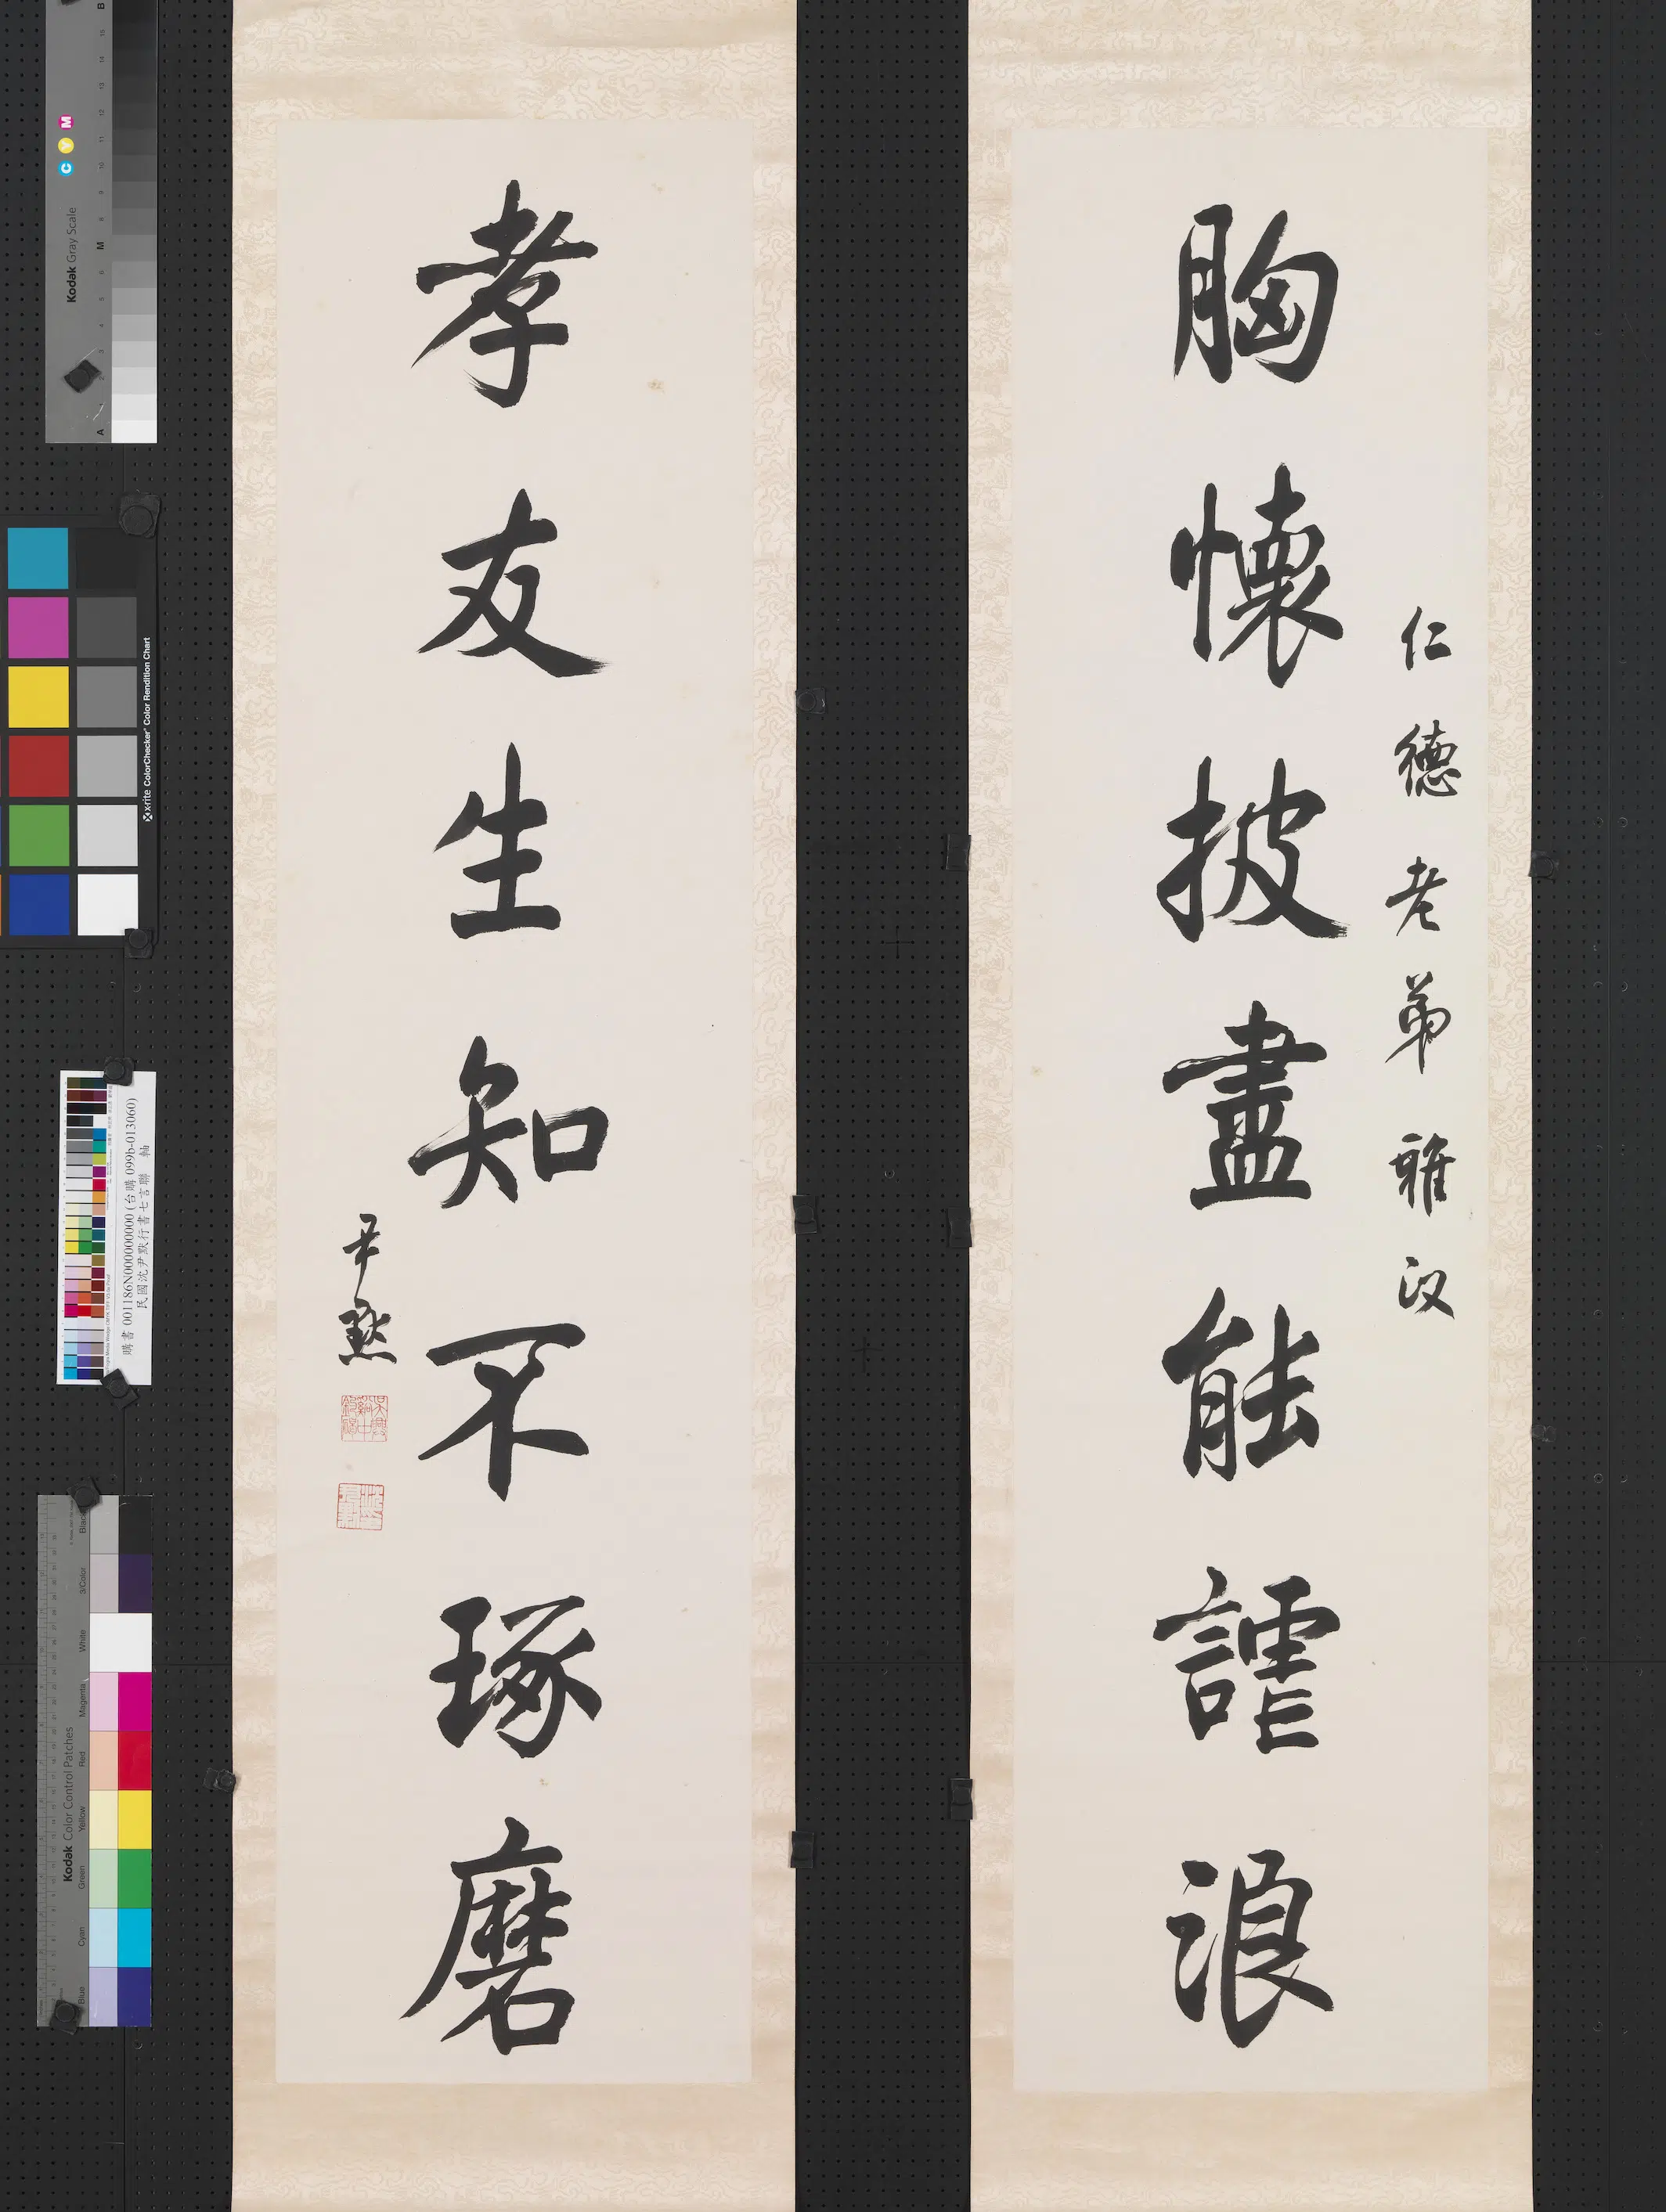 仁德老弟雅汉
胸懷披盡能謔浪
孝友生知不琢磨
尹默
購書 001186N000000000 (台購 099b-013060)
民國沈尹默行書七言聯 軸
Kodak Gray Scale
C Y M
A
M
B
x-rite ColorChecker Color Rendition Chart
Kodak Color Control Patches
Blue
Cyan
Green
Yellow
Red
Magenta
White
3/Color
Black